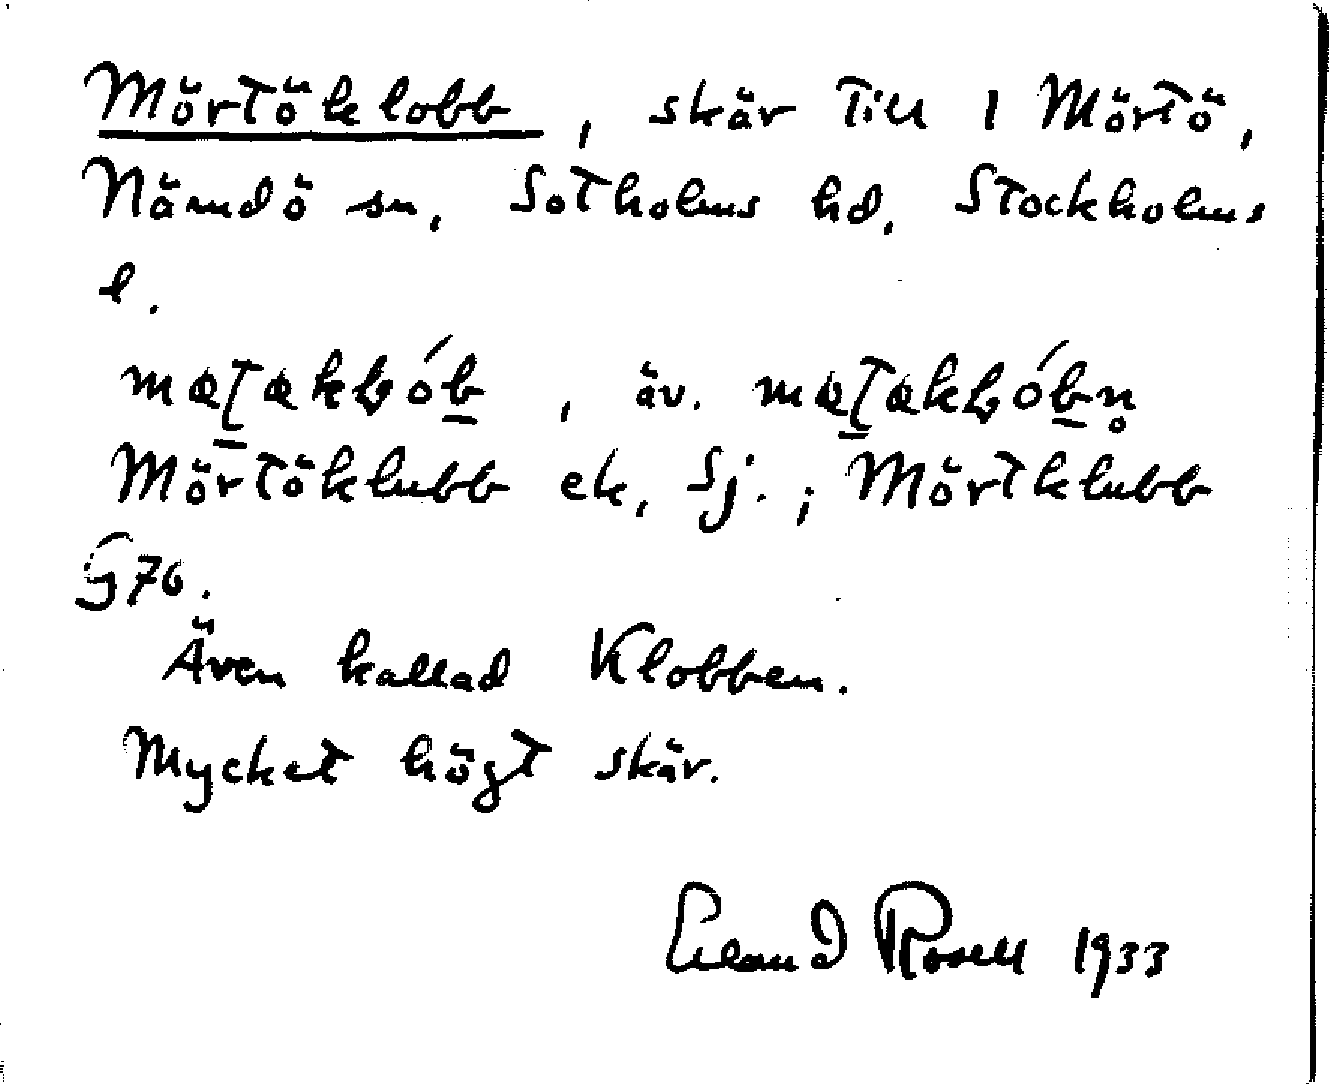 Mörtöklobb, skär till 1 Mörtö,
Nämdö sn, Sotholms hd, Stockholms
l.
, äv.
Mörtöklubb ek, Sj.; Mörtklubb
G76.
Även kallad Klobben.
Mycket högt skär.
Erland Rosell 1933